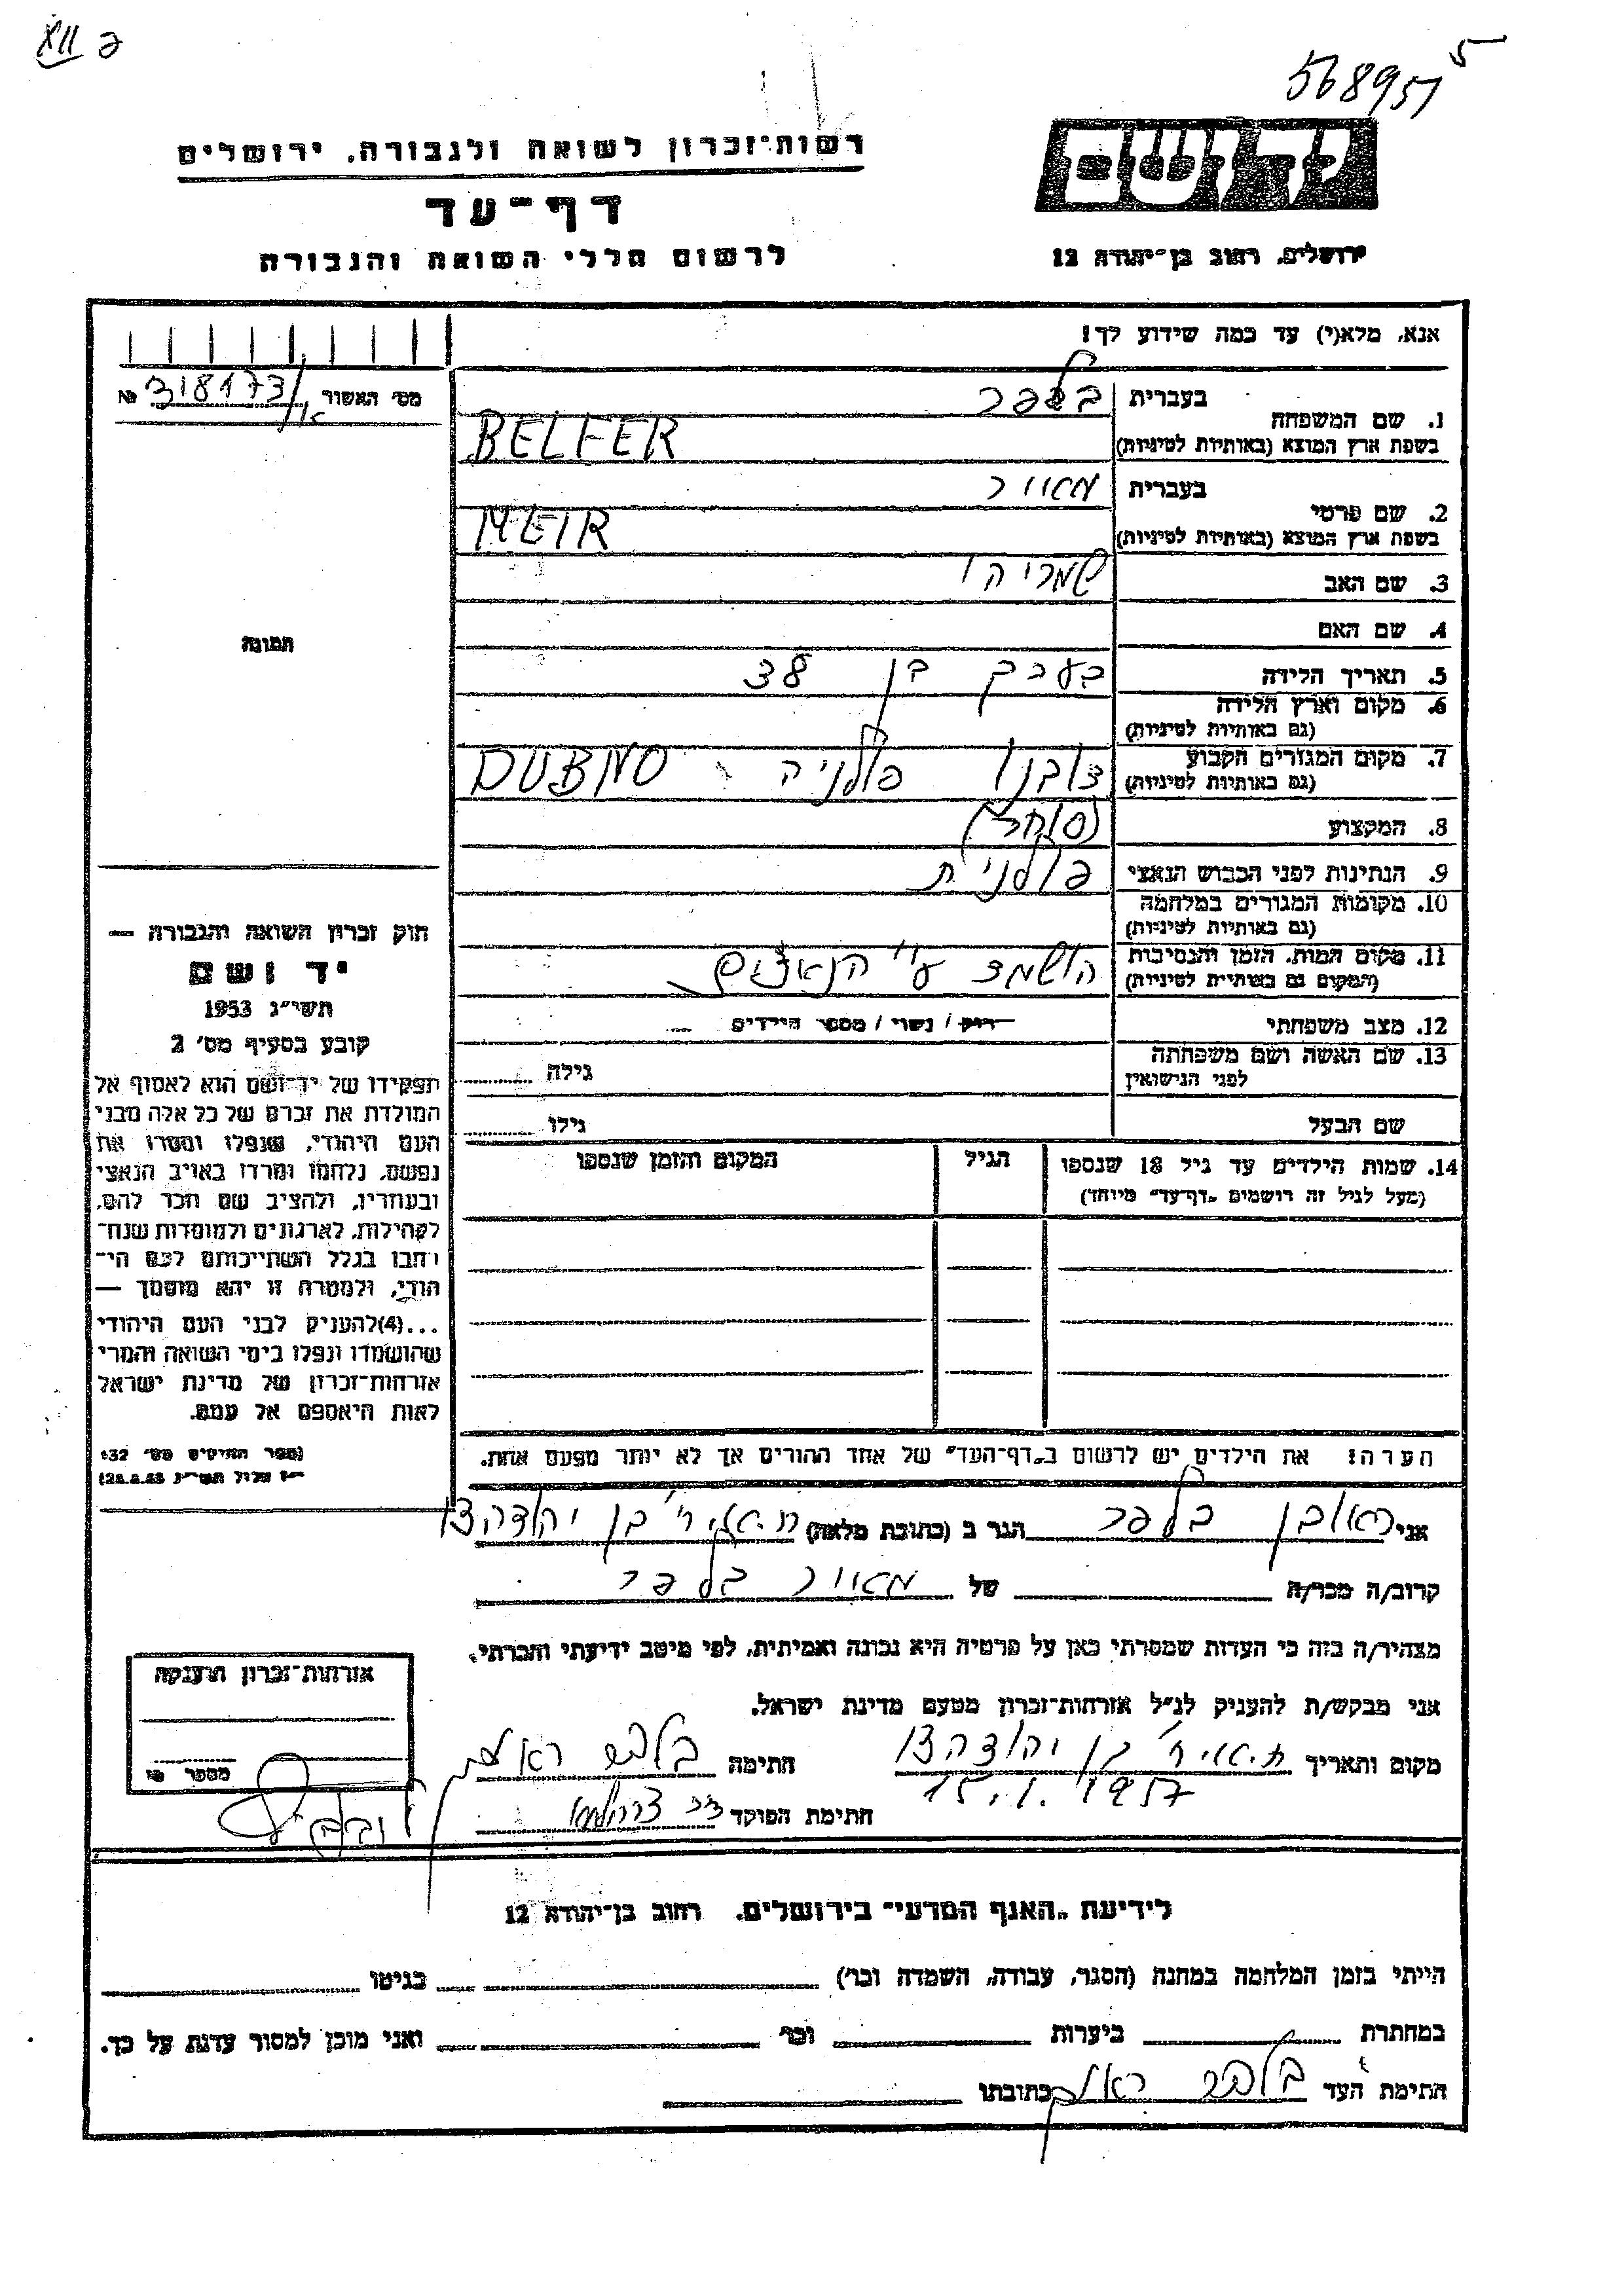 XII
568951
5
רשות-זכרון לשואה ולגבורה, ירושלים
יד ושם
דף-עד
לרשום חללי השואה והגבורה
ירושלים, רחוב בן-יהודה 12
אנא, מלא(י) עד כמה שידוע לך!
מס' האשור 318173 №
1. שם המשפחה
בעברית בלפר
בשפת ארץ המוצא (באותיות לטיניות) BELFER
2. שם פרטי
בעברית מאיר
בשפת ארץ המוצא (באותיות לטיניות) MEIR
3. שם האב שמריהו
תמונה
4. שם האם
5. תאריך הלידה בערך בן 38
6. מקום וארץ הלידה
(גם באותיות לטיניות)
7. מקום המגורים הקבוע דובנו פולניה DUBNO
(גם באותיות לטיניות)
8. המקצוע (סוחר)
9. הנתינות לפני הכבוש הנאצי פולנית
10. מקומות המגורים במלחמה
(גם באותיות לטיניות)
11. מקום המות, הזמן והנסיבות הושמד ע"י הנאצים
(המקום גם באותיות לטיניות)
12. מצב משפחתי רווק / נשוי / מספר הילדים
13. שם האשה ושם משפחתה
לפני הנישואין
גילה
שם הבעל גילו
14. שמות הילדים עד גיל 18 שנספו הגיל המקום והזמן שנספו
(מעל לגיל זה רושמים "דף-עד" מיוחד)
חוק זכרון השואה והגבורה —
יד ושם
תשי"ג 1953
קובע בסעיף מס' 2
תפקידו של יד-ושם הוא לאסוף אל
המולדת את זכרם של כל אלה מבני
העם היהודי, שנפלו ומסרו את
נפשם, נלחמו ומרדו באויב הנאצי
ובעוזריו, ולהציב שם וזכר להם,
לקהילות, לארגונים ולמוסדות שנח-
רבו בגלל השתייכותם לעם הי-
הודי, ולמטרה זו יהא מוסמך —
...(4)להעניק לבני העם היהודי
שהושמדו ונפלו בימי השואה והמרי
אזרחות-זכרון של מדינת ישראל
לאות היאספם אל עמם.
(ספר החוקים מס' 132
י"ז אלול תשי"ג 28.8.53)
הערה: את הילדים יש לרשום ב"דף-העד" של אחד ההורים אך לא יותר מפעם אחת.
אני ראובן בלפר הגר ב (כתובת מלאה) ת.א. רח' בן יהודה 13
קרוב/ה מכר/ה של מאיר בלפר
מצהיר/ה בזה כי העדות שמסרתי כאן על פרטיה היא נכונה ואמיתית, לפי מיטב ידיעתי והכרתי.
אני מבקש/ת להעניק לנ"ל אזרחות-זכרון מטעם מדינת ישראל.
מקום ותאריך ת.א. רח' בן יהודה 13 חתימה בלפר ראובן
15.1.1957
חתימת הפוקד
אזרחות-זכרון הוענקה
מספר
לידיעת "האגף המדעי" בירושלים, רחוב בן-יהודה 12
הייתי בזמן המלחמה במחנה (הסגר, עבודה, השמדה וכו') בגיטו
במחתרת ביערות וכו' ואני מוכן למסור עדות על כך.
חתימת העד בלפר ראובן כתובתו